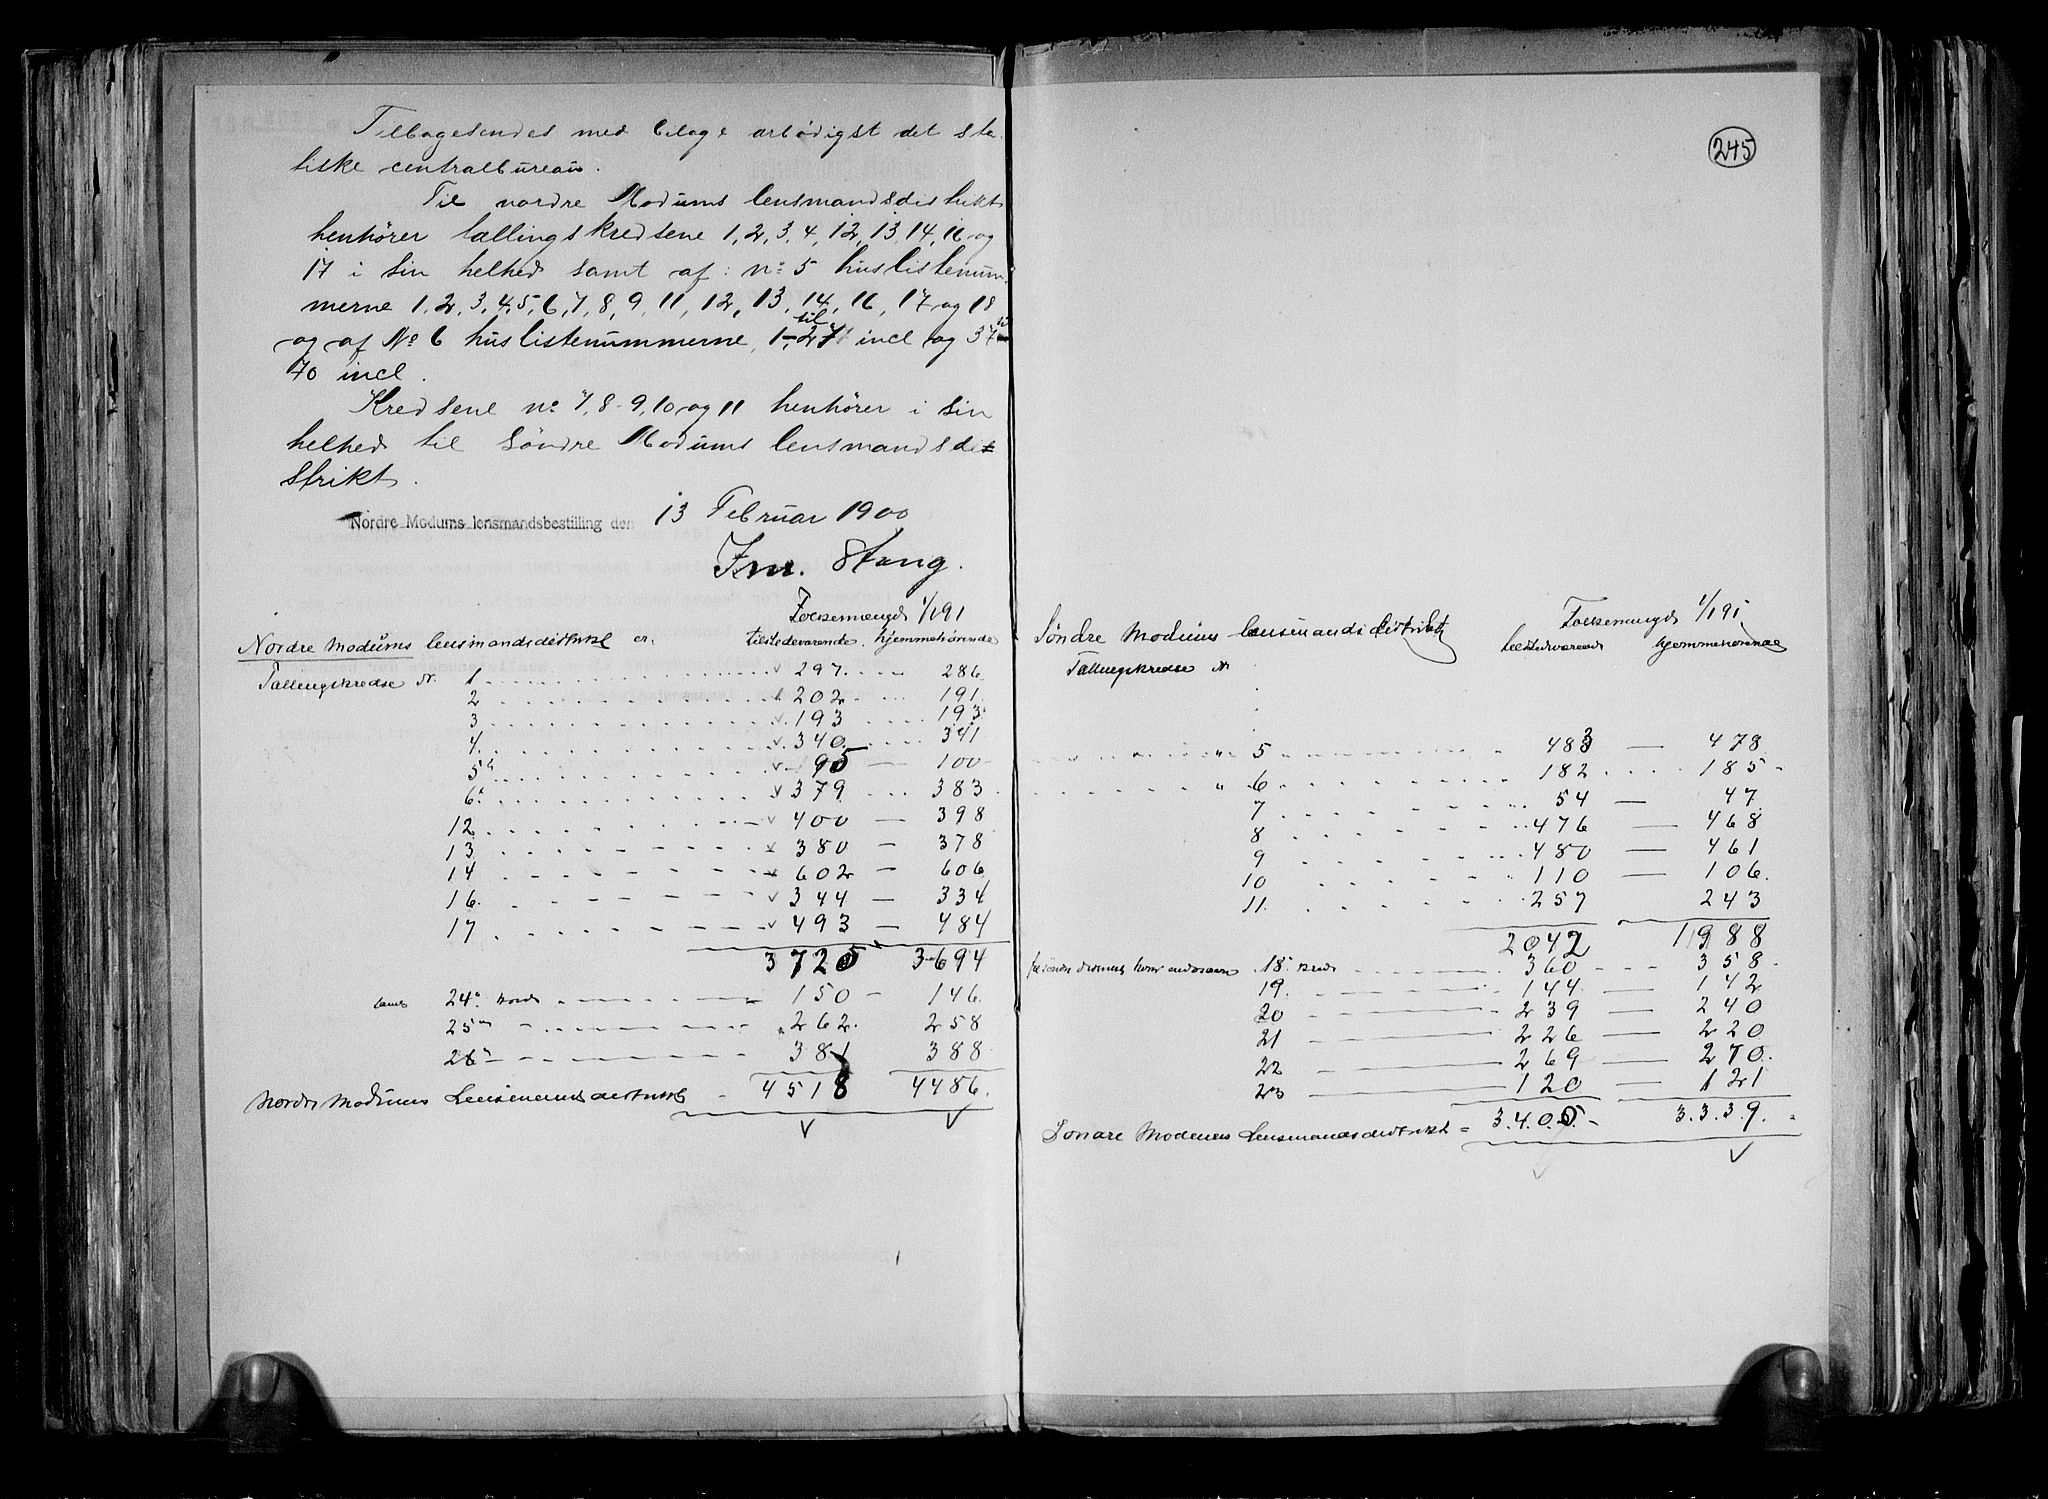 Tilbagesendes med bilage ærbødigst det sta-
tiske centralbureau.
Til nordre Modums lensmandsdistrikt
henhører tællingskredsene 1, 2, 3, 4, 12, 13, 14, 16 og
17 i sin helhed samt af: No 5 huslistenum-
merne 1, 2, 3, 4, 5, 6, 7, 8, 9, 11, 12, 13, 14, 16, 17 og 18
og af No 6 huslistenummerne 1 til 27 incl og 37
70 incl.
Kredsene no 7, 8, 9, 10 og 11 henhører i sin
helhed til Søndre Modums lensmandsdi=
strikt.
Nordre Modums lensmandsbestilling den 13 Februar 1900
Stang.
Folkemængde 1/1 91
Nordre Modums lensmandsdistrikt er: tilstedeværende. hjemmehørende
Tællingskredse Nr. 1 297 286
2 202 191
3 193 193
4 340 341
5 95 100
6 379 383
12 400 398
13 380 378
14 602 606
16 344 334
17 493 484
3720 3694
24 Kreds 150 146
25 262 258
26 381 388
Nordre Modums Lensmandsdistrikt 4518 4486.
245
Folkemængde 1/1 91
Søndre Modums lensmandsdistrikt tilstedeværende hjemmehørende
Tællingskredse Nr
5 483 478
6 182 185
7 54 47
8 476 468
9 480 461
10 110 106
11 257 243
2042 1988
18 Kreds 360 358
19 144 142
20 239 240
21 226 220
22 269 270
23 120 121
Søndre Modums Lensmandsdistrikt = 3.400 3.339.